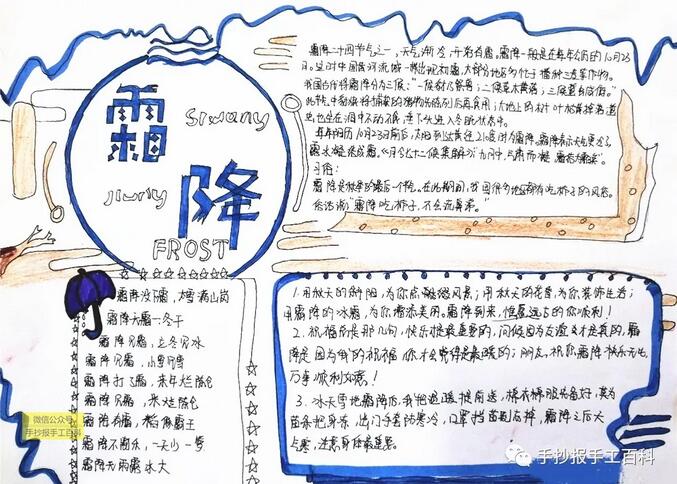 霜降
Srwany
Jiwny
FROST
霜降二十四节气之一,天气渐冷,开始有霜。霜降一般是在每年公历的10月23
日。这时中国黄河流域一带出现初霜,大部分地区多忙于播种三麦等作物。
我国古代将霜降分为三候:"一候豺乃祭兽;二候草木黄落;三候蛰虫咸俯。"
此节气中豺狼将捕获的猎物先陈列后再食用;大地上的树叶枯黄掉落;蛰
虫也在洞中不动不食,垂下头进入冬眠状态中。
每年阳历10月23日前后,太阳到达黄经210度时为霜降。霜降表示天气更冷了,
露水凝结成霜。《月令七十二候集解》:"九月中,气肃而凝,露结为霜矣"
习俗:
霜降是秋季的最后一个节气。在此期间,我国很多地区都有吃柿子的风俗。
俗话说:"霜降吃柿子,不会流鼻涕。"
霜降没下霜,大雪满山岗
霜降无霜一冬干
霜降见霜,立冬见冰
霜降见霜,小雪见雪
霜降打了霜,来年烂陈仓
霜降见霜,米烂陈仓
霜降有霜,稻像霸王
霜降不割禾,一天少一箩
霜降无雨露水大
1.用秋天的斜阳,为你点缀风景;用秋天的花香,为你装饰生活;
用霜降的冰霜,为你增添美丽。霜降到来,恒星远古的你顺利!
2.祝福就是那几句,快乐健康最重要的,问候因为友谊才是真的,霜
降是因为我的祝福你才会觉得是最暖的;朋友,祝你霜降快乐无比,
万事顺利如意!
3.冰天雪地霜降临,我把温暖提前送,棉衣棉服准备好,莫为
苗条把身冻,出门手套防寒冷,口罩挡雾别忘掉,霜降之后天
点寒,注意身体最重要。
微信公众号
手抄报手工百科
手抄报手工百科